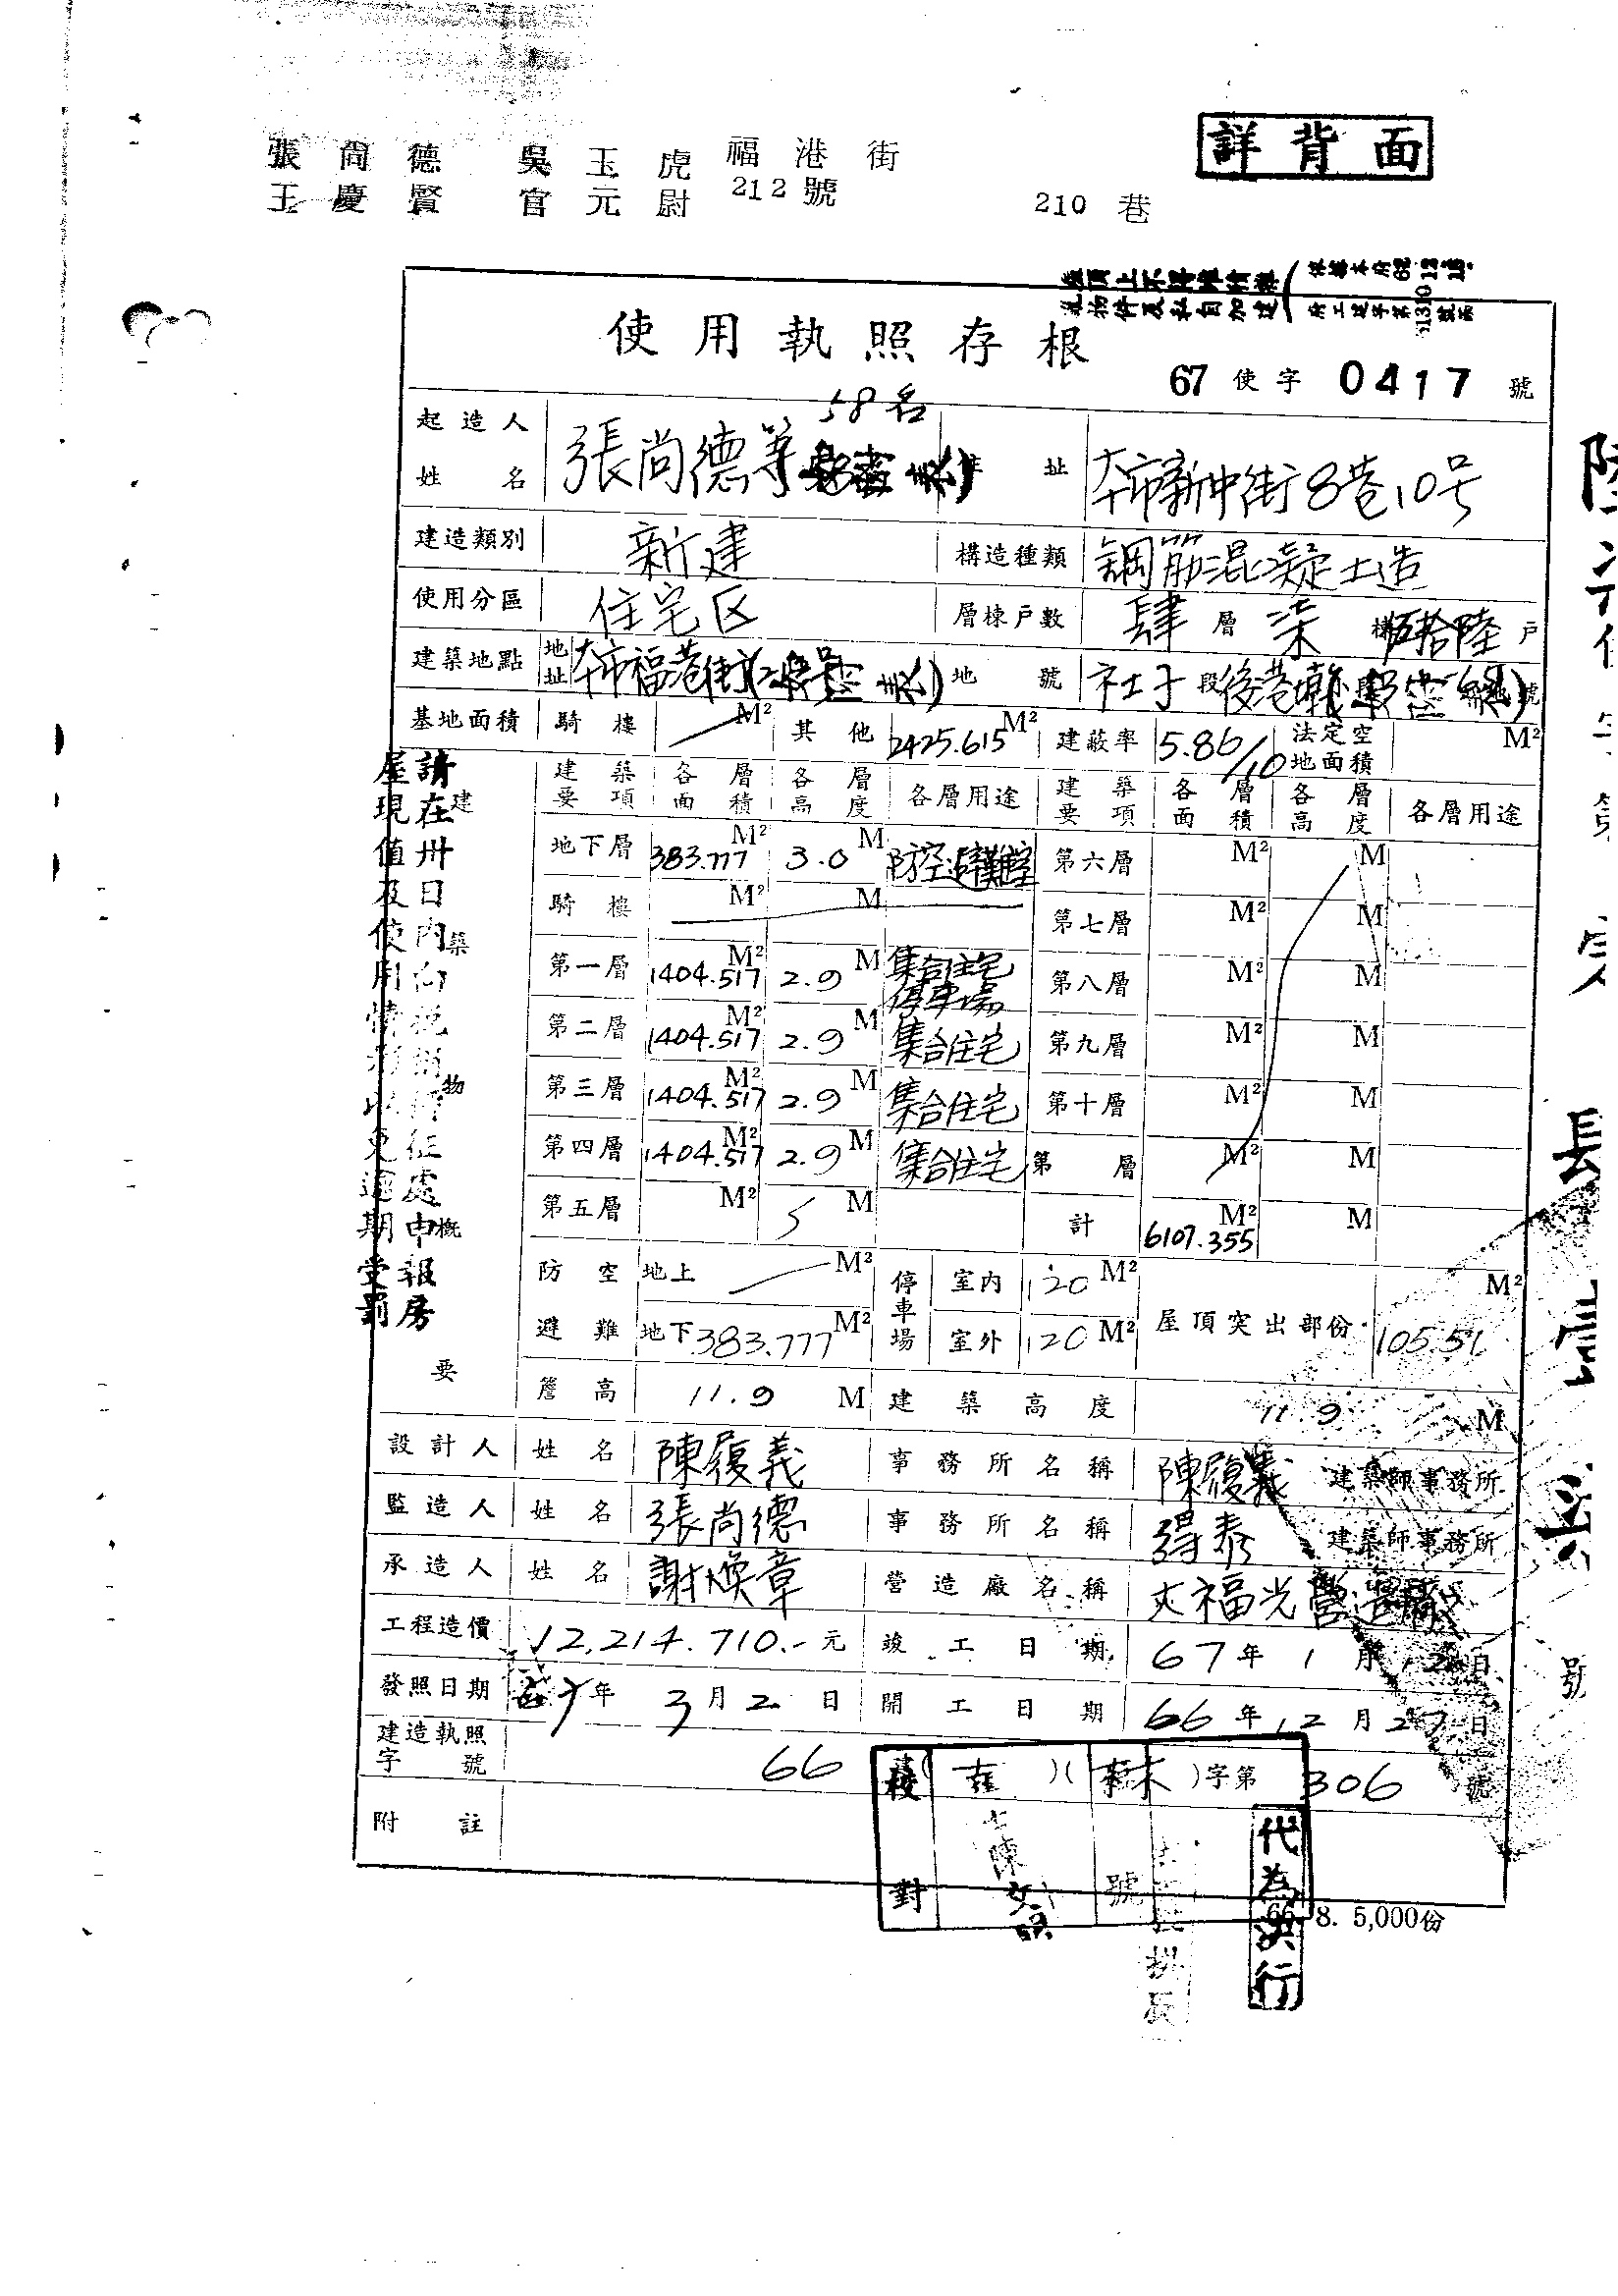 詳背面
張尚德 吳玉虎 福港街
王慶賢 官元尉 212號 210巷
屋頂上不得堆積雜
亂物件及私自加建
使用執照存根
67 使字 0417 號
起造人姓名 張尚德等58名 住址 本市新中街8巷10号
建造類別 新建 構造種類 鋼筋混凝土造
使用分區 住宅区 層棟戶數 肆層 柒棟 伍拾陸戶
建築地點 地址 本市福港街 地號 社子段後港墘小段
基地面積 騎樓 — M² 其他 2425.615 M² 建蔽率 5.86/10 法定空地面積 M²
建築要項 各層面積 各層高度 各層用途 建築要項 各層面積 各層高度 各層用途
地下層 383.777 M² 3.0 M 防空避難室 第六層 M² M
騎樓 M² M 第七層 M² M
第一層 1404.517 M² 2.9 M 集合住宅停車場 第八層 M² M
第二層 1404.517 M² 2.9 M 集合住宅 第九層 M² M
第三層 1404.517 M² 2.9 M 集合住宅 第十層 M² M
第四層 1404.517 M² 2.9 M 集合住宅 第 層 M² M
第五層 M² M 計 6107.355 M² M
防空避難 地上 — M² 停車場 室內 120 M² 屋頂突出部份 105.51 M²
地下 383.777 M² 室外 120 M²
簷高 11.9 M 建築高度 11.9 M
建築物概要
請在卅日內向稅捐稽征處申報房
屋現值及使用情形以免逾期受罰
設計人 姓名 陳履義 事務所名稱 陳履義 建築師事務所
監造人 姓名 張尚德 事務所名稱 得泰 建築師事務所
承造人 姓名 謝煥章 營造廠名稱 福光營造廠
工程造價 12,214.710.- 元 竣工日期 67年1月 日
發照日期 67年3月2日 開工日期 66年12月27日
建造執照字號 66 建( )( 林 )字第 306 號
附註
校對 陳文 號
代為決行
66. 8. 5,000份